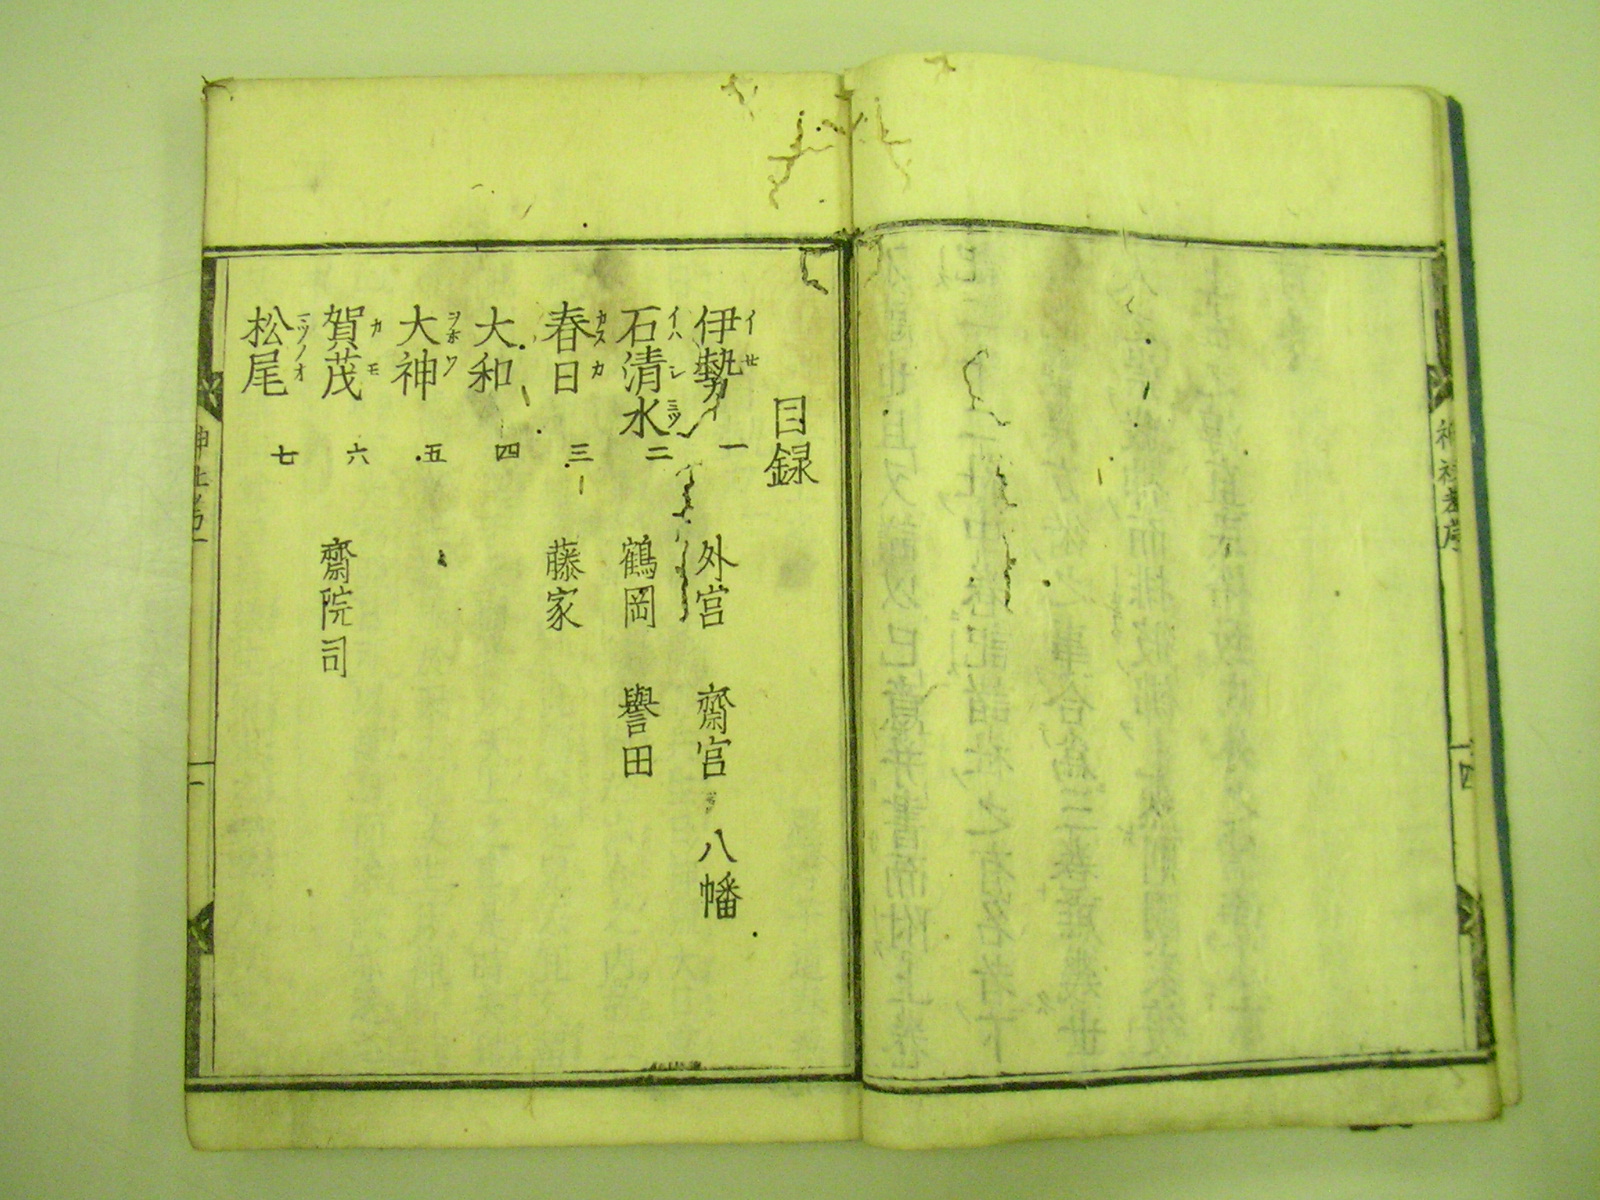 神社考序
四
目録
伊勢 イセ 一 外宮 齋宮 八幡
石清水 イハシミツ 二 鶴岡 譽田
春日 カスカ 三 藤家
大和 四
大神 ヲホワ 五
賀茂 カモ 六 齋院司
松尾 ミツノオ 七
神社考一
一